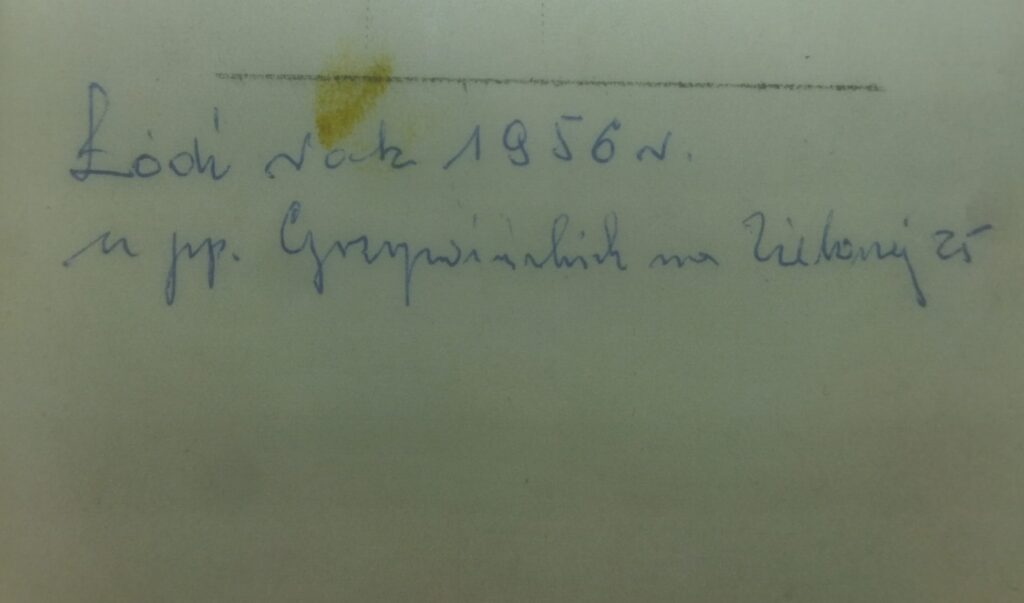 Łódź rok 1956 r.
u pp. Grzywińskich na Zielonej 25